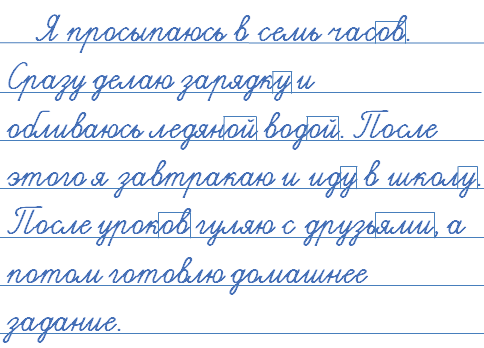 Я просыпаюсь в семь часов.
Сразу делаю зарядку и
обливаюсь ледяной водой. После
этого я завтракаю и иду в школу.
После уроков гуляю с друзьями, а
потом готовлю домашнее
задание.